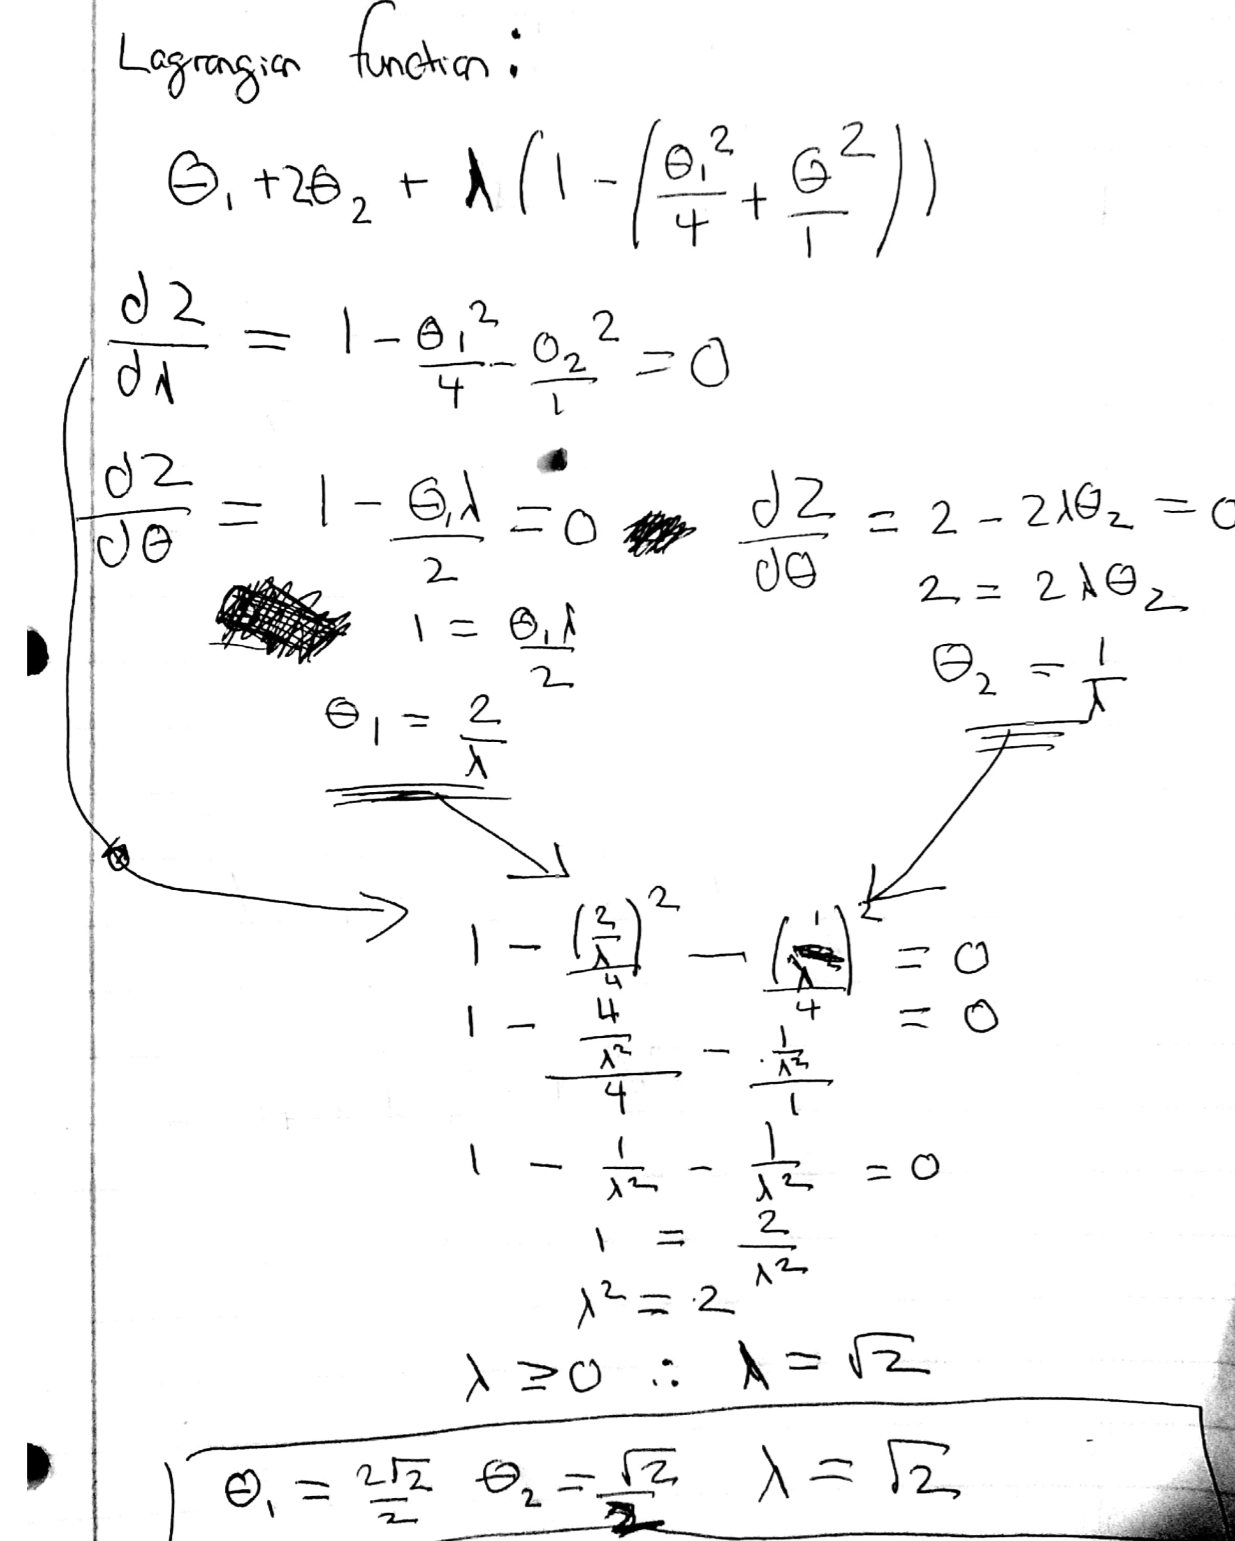 Lagrangian function:
θ₁ + 2θ₂ + λ(1 - (θ₁²/4 + θ²/1))
d2/dλ = 1 - θ₁²/4 - θ₂²/1 = 0
d2/dθ = 1 - θ₁λ/2 = 0    d2/dθ = 2 - 2λθ₂ = 0
1 = θ₁λ/2    2 = 2λθ₂
θ₁ = 2/λ    θ₂ = 1/λ
1 - (2/λ)²/4 - (1/λ)²/4 = 0
1 - (4/λ²)/4 - (1/λ²)/1 = 0
1 - 1/λ² - 1/λ² = 0
1 = 2/λ²
λ² = 2
λ ≥ 0 ∴ λ = √2
θ₁ = 2√2/2  θ₂ = √2/2  λ = √2